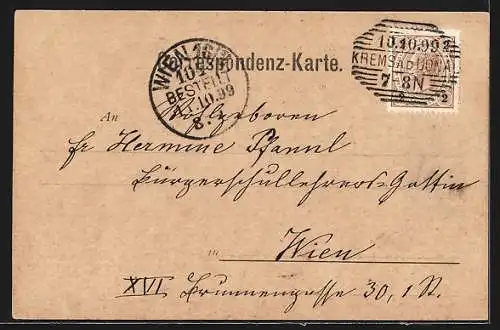 WIEN 16/1
101
BESTELLT
11.10.99
8.
Correspondenz-Karte.
10.10.99
KREMS A.D. DONAU
7-8N
2 2
An Hochgeboren
Fr Hermine Pfannl
Bürgerschullehrers-Gattin
in Wien
XVI Brunnengasse 30, 1 St.